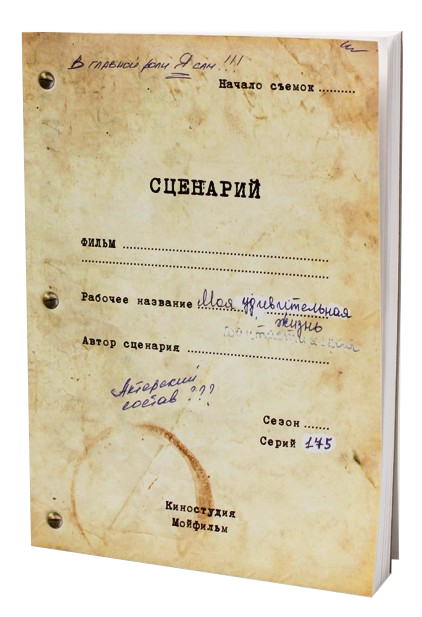 В главной роли Я сам!!!
Начало съемок ..........
СЦЕНАРИЙ
ФИЛЬМ ..........................................................
......................................................................
Рабочее название Моя удивительная
жизнь
фантастическая
Автор сценария ........................................
Актерский
состав???
Сезон .......
Серий 175
Киностудия
Мойфильм